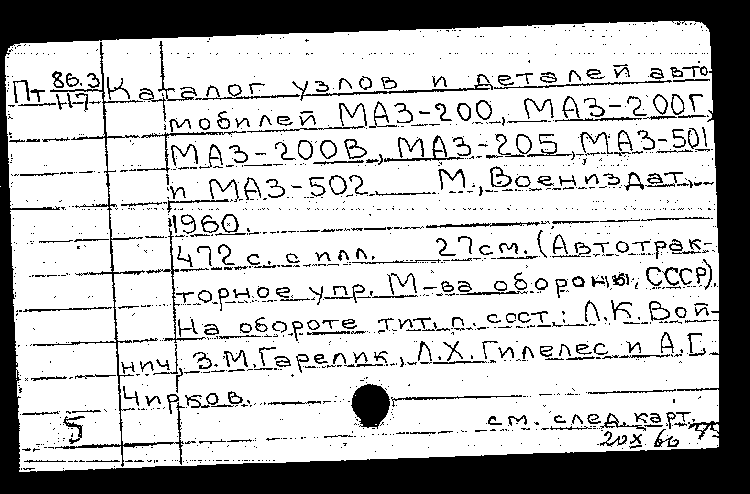 Пт 86.3/117 Каталог узлов и деталей авто-
мобилей МАЗ-200, МАЗ-200Г,
МАЗ-200В, МАЗ-205, МАЗ-501
и МАЗ-502. М., Воениздат,
1960.
472 с. с илл. 27см. (Автотрак-
торное упр. М-ва обороны, СССР).
На обороте тит. л. сост.: Л.К. Вой-
нич, З.М. Гарелик, Л.Х. Гилелес и А.С.
Чирков.
5 см. след. карт.
20X 60